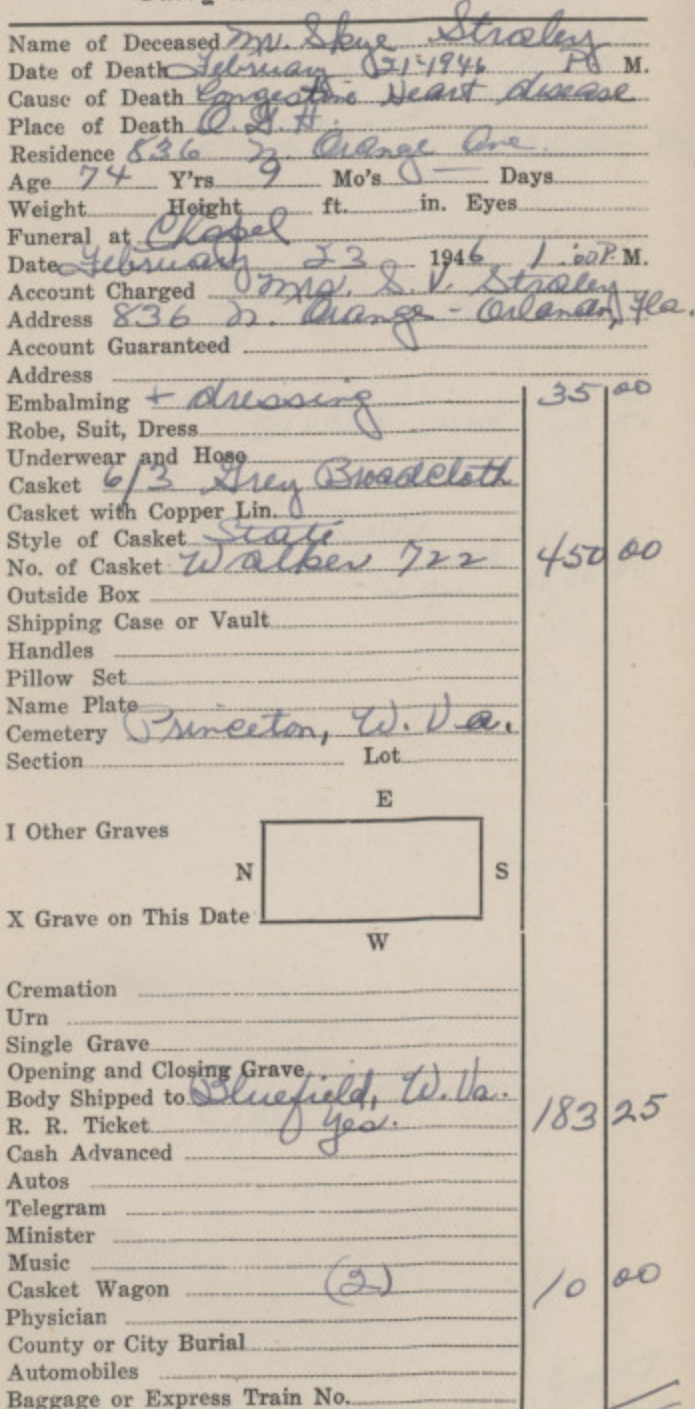 Name of Deceased Mr. Skye Straley
Date of Death February 21-1946 P M.
Cause of Death Congestive Heart disease
Place of Death O. G. H.
Residence 836 N. Orange Ave.
Age 74 Y'rs 9 Mo's — Days
Weight Height ft. in. Eyes
Funeral at Chapel
Date February 23 1946 1:00 P. M.
Account Charged Mrs. S. V. Straley
Address 836 N. Orange - Orlando, Fla.
Account Guaranteed
Address
Embalming + dressing 35 00
Robe, Suit, Dress
Underwear and Hose
Casket 6/3 Grey Broadcloth
Casket with Copper Lin.
Style of Casket State
No. of Casket Walker 722 450 00
Outside Box
Shipping Case or Vault
Handles
Pillow Set
Name Plate
Cemetery Princeton, W. Va.
Section Lot
E
I Other Graves
N S
X Grave on This Date
W
Cremation
Urn
Single Grave
Opening and Closing Grave
Body Shipped to Bluefield, W. Va.
R. R. Ticket Yes. 183 25
Cash Advanced
Autos
Telegram
Minister
Music
Casket Wagon (2) 10 00
Physician
County or City Burial
Automobiles
Baggage or Express Train No.